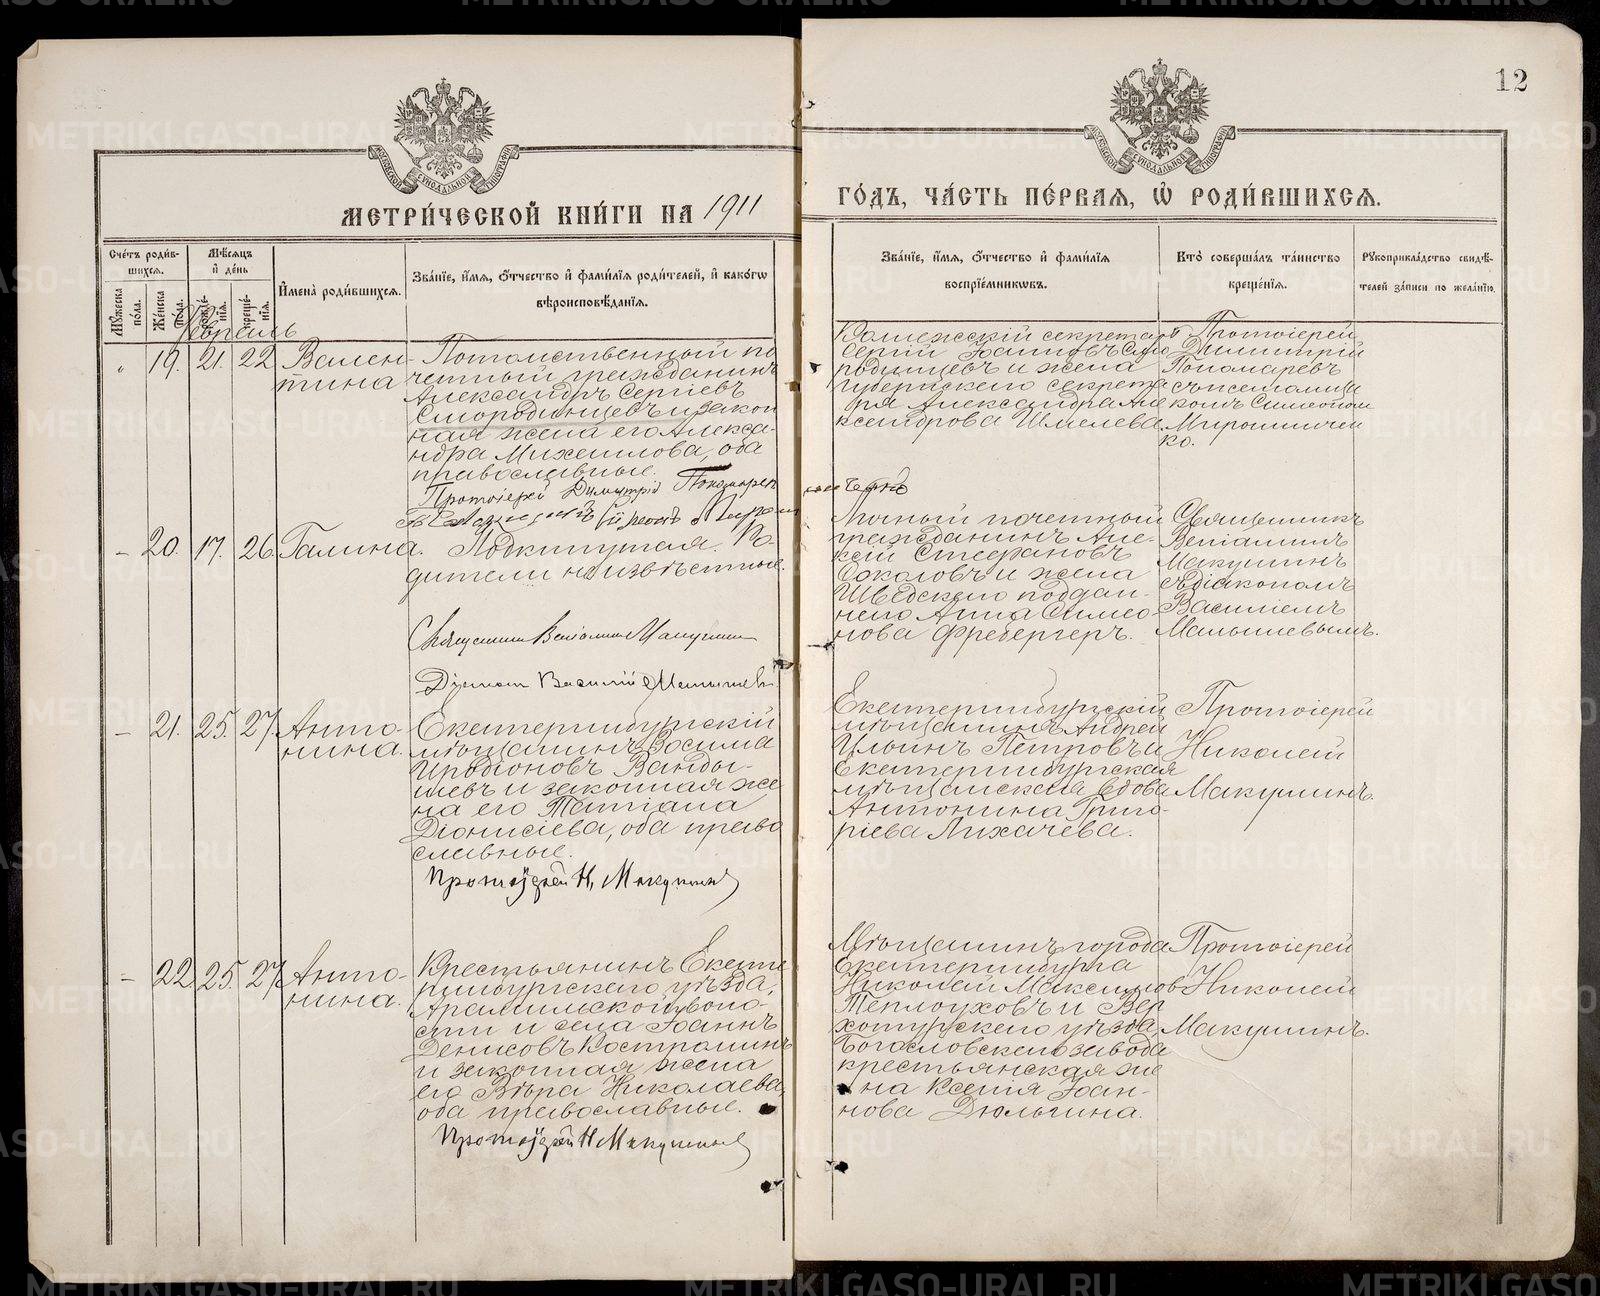 12
МЕТРИ́ЧЕСКОЙ КНИ́ГИ НА 1911
ГО́ДЪ, ЧА́СТЬ ПЕ́РВАЯ, Ѡ҆ РОДИ́ВШИХСЯ.
Сче́тъ роди́в-
шихся.
Мꙋ́жеска по́ла.
Же́нска по́ла.
Мѣ́сяцъ и҆ де́нь
рожде́-нїя.
креще́-нїя.
И҆мена̀ роди́вшихся.
Зва́нїе, и҆́мя, ѻ҆́тчество и҆ фами́лїя роди́телей, и҆ како́гѡ
вѣроисповѣ́данїя.
Зва́нїе, и҆́мя, ѻ҆́тчество и҆ фами́лїя
воспрїе́мникѡвъ.
Кто̀ соверша́лъ та́инство
креще́нїя.
Рꙋкоприкла́дство свидѣ́-
телей за́писи по жела́нїю.
Февраль
" 19. 21. 22
Вален-
тина
Потомственный по
четный гражданинъ
Александръ Сергіевъ
Смородинцевъ и закон
ная жена его Алекса-
ндра Михаилова, оба
православные.
Протоіерей Димитрій Пономаревъ
Коллежскій секретарь
Сергій Іоанновъ Смо
родинцевъ и жена
губернскаго секрета
ря Александра Але
ксандрова Шмелева
Протоіерей
Димитрій
Пономаревъ
съ псаломщи
комъ Симеоном
Мирошничен
ко.
– 20. 17. 26
Галина.
Подкинутая. Ро-
дители неизвѣстные.
Священникъ Веніаминъ Макушинъ
Діаконъ Василій Малышевъ
Личный почетный
гражданинъ Але-
ксій Стефановъ
Соколовъ и жена
Шведскаго поддан-
наго Анна Симео-
нова Фребергеръ.
Священникъ
Веніаминъ
Макушинъ
съ діакономъ
Василіемъ
Малышевымъ.
– 21. 25. 27
Анто-
нина.
Екатеринбургскій
мѣщанинъ Зосима
Иродіоновъ Ванды-
шевъ и законная же
на его Татіана
Діонисіева, оба право
славные.
Протоіерей Н. Макушинъ
Екатеринбургскій
мѣщанинъ Андрей
Ильинъ Петровъ и
Екатеринбургская
мѣщанская вдова
Антонина Григо-
ріева Лихачева.
Протоіерей
Николай
Макушинъ.
– 22 25. 27
Анто-
нина.
Крестьянинъ Екате
ринбургскаго уѣзда,
Арамильской воло-
сти и села Іоаннъ
Денисовъ Костроминъ
и законная жена
его Вѣра Николаева,
оба православные.
Протоіерей Н. Макушинъ
Мѣщанинъ города
Екатеринбурга
Николай Максимов
Теплоуховъ и Вер
хотурскаго уѣзда
Богословскаго завода
крестьянская же
на Ксенія Іоан-
нова Дюльгина.
Протоіерей
Николай
Макушинъ.